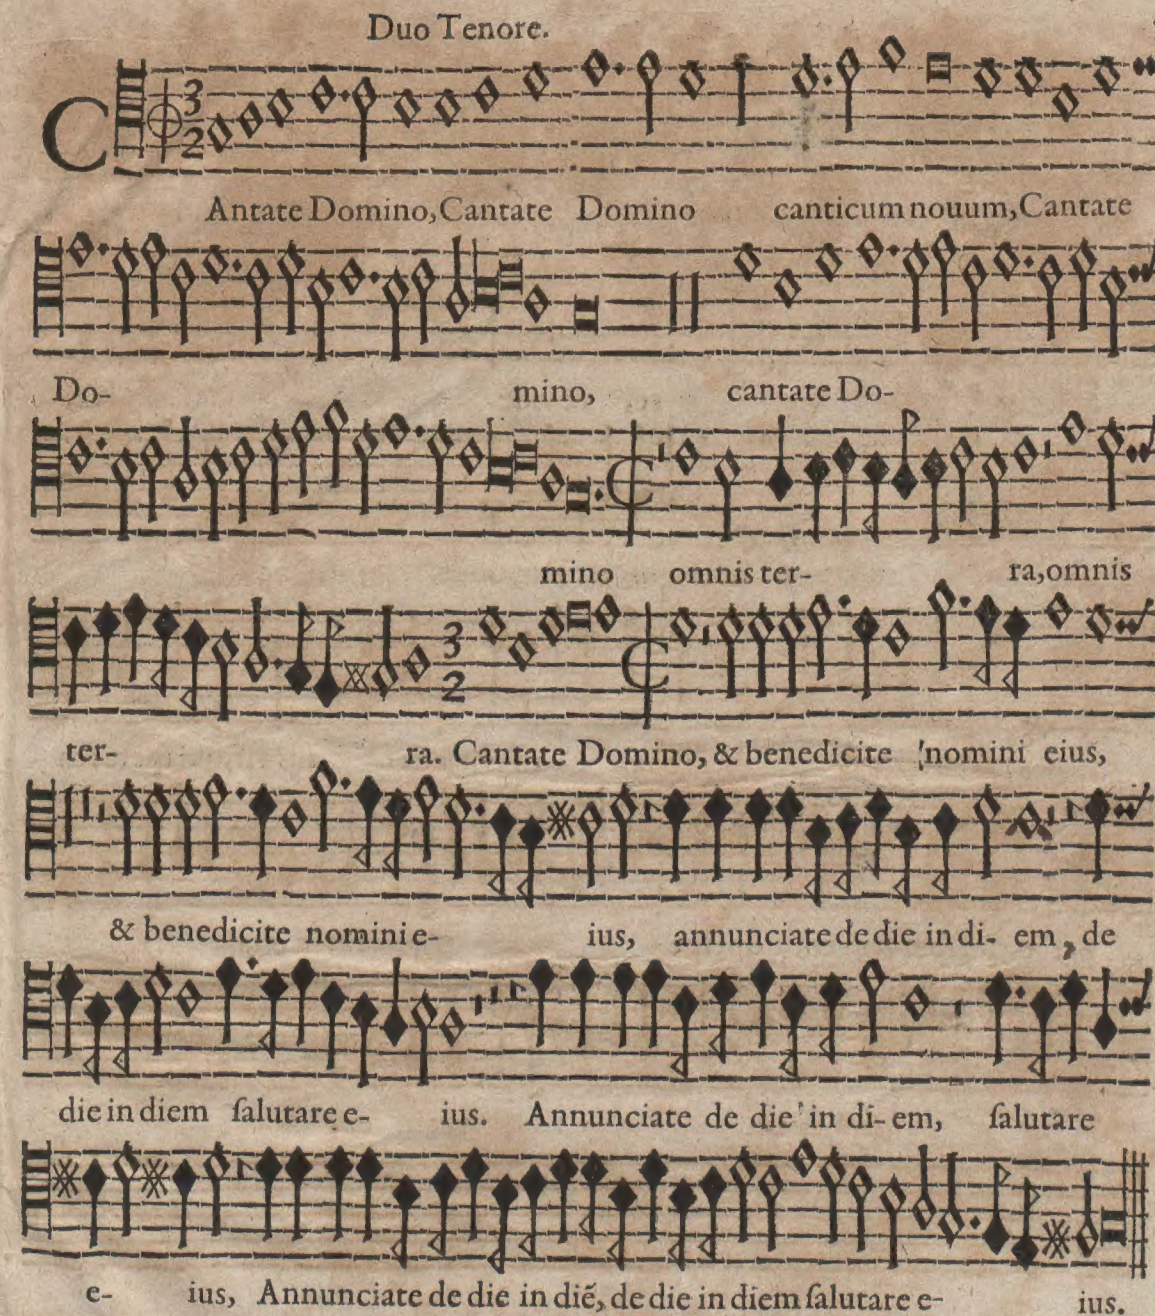 Duo Tenore.
C
3
3
2
Antate Domino, Cantate Domino canticum nouum, Cantate
Do- mino, cantate Do-
mino omnis ter- ra, omnis
3
2
ter- ra. Cantate Domino, & benedicite nomini eius,
& benedicite nomini e- ius, annunciate de die in di- em, de
die in diem ſalutare e- ius. Annunciate de die in di- em, ſalutare
e- ius, Annunciate de die in diẽ, de die in diem ſalutare e- ius.